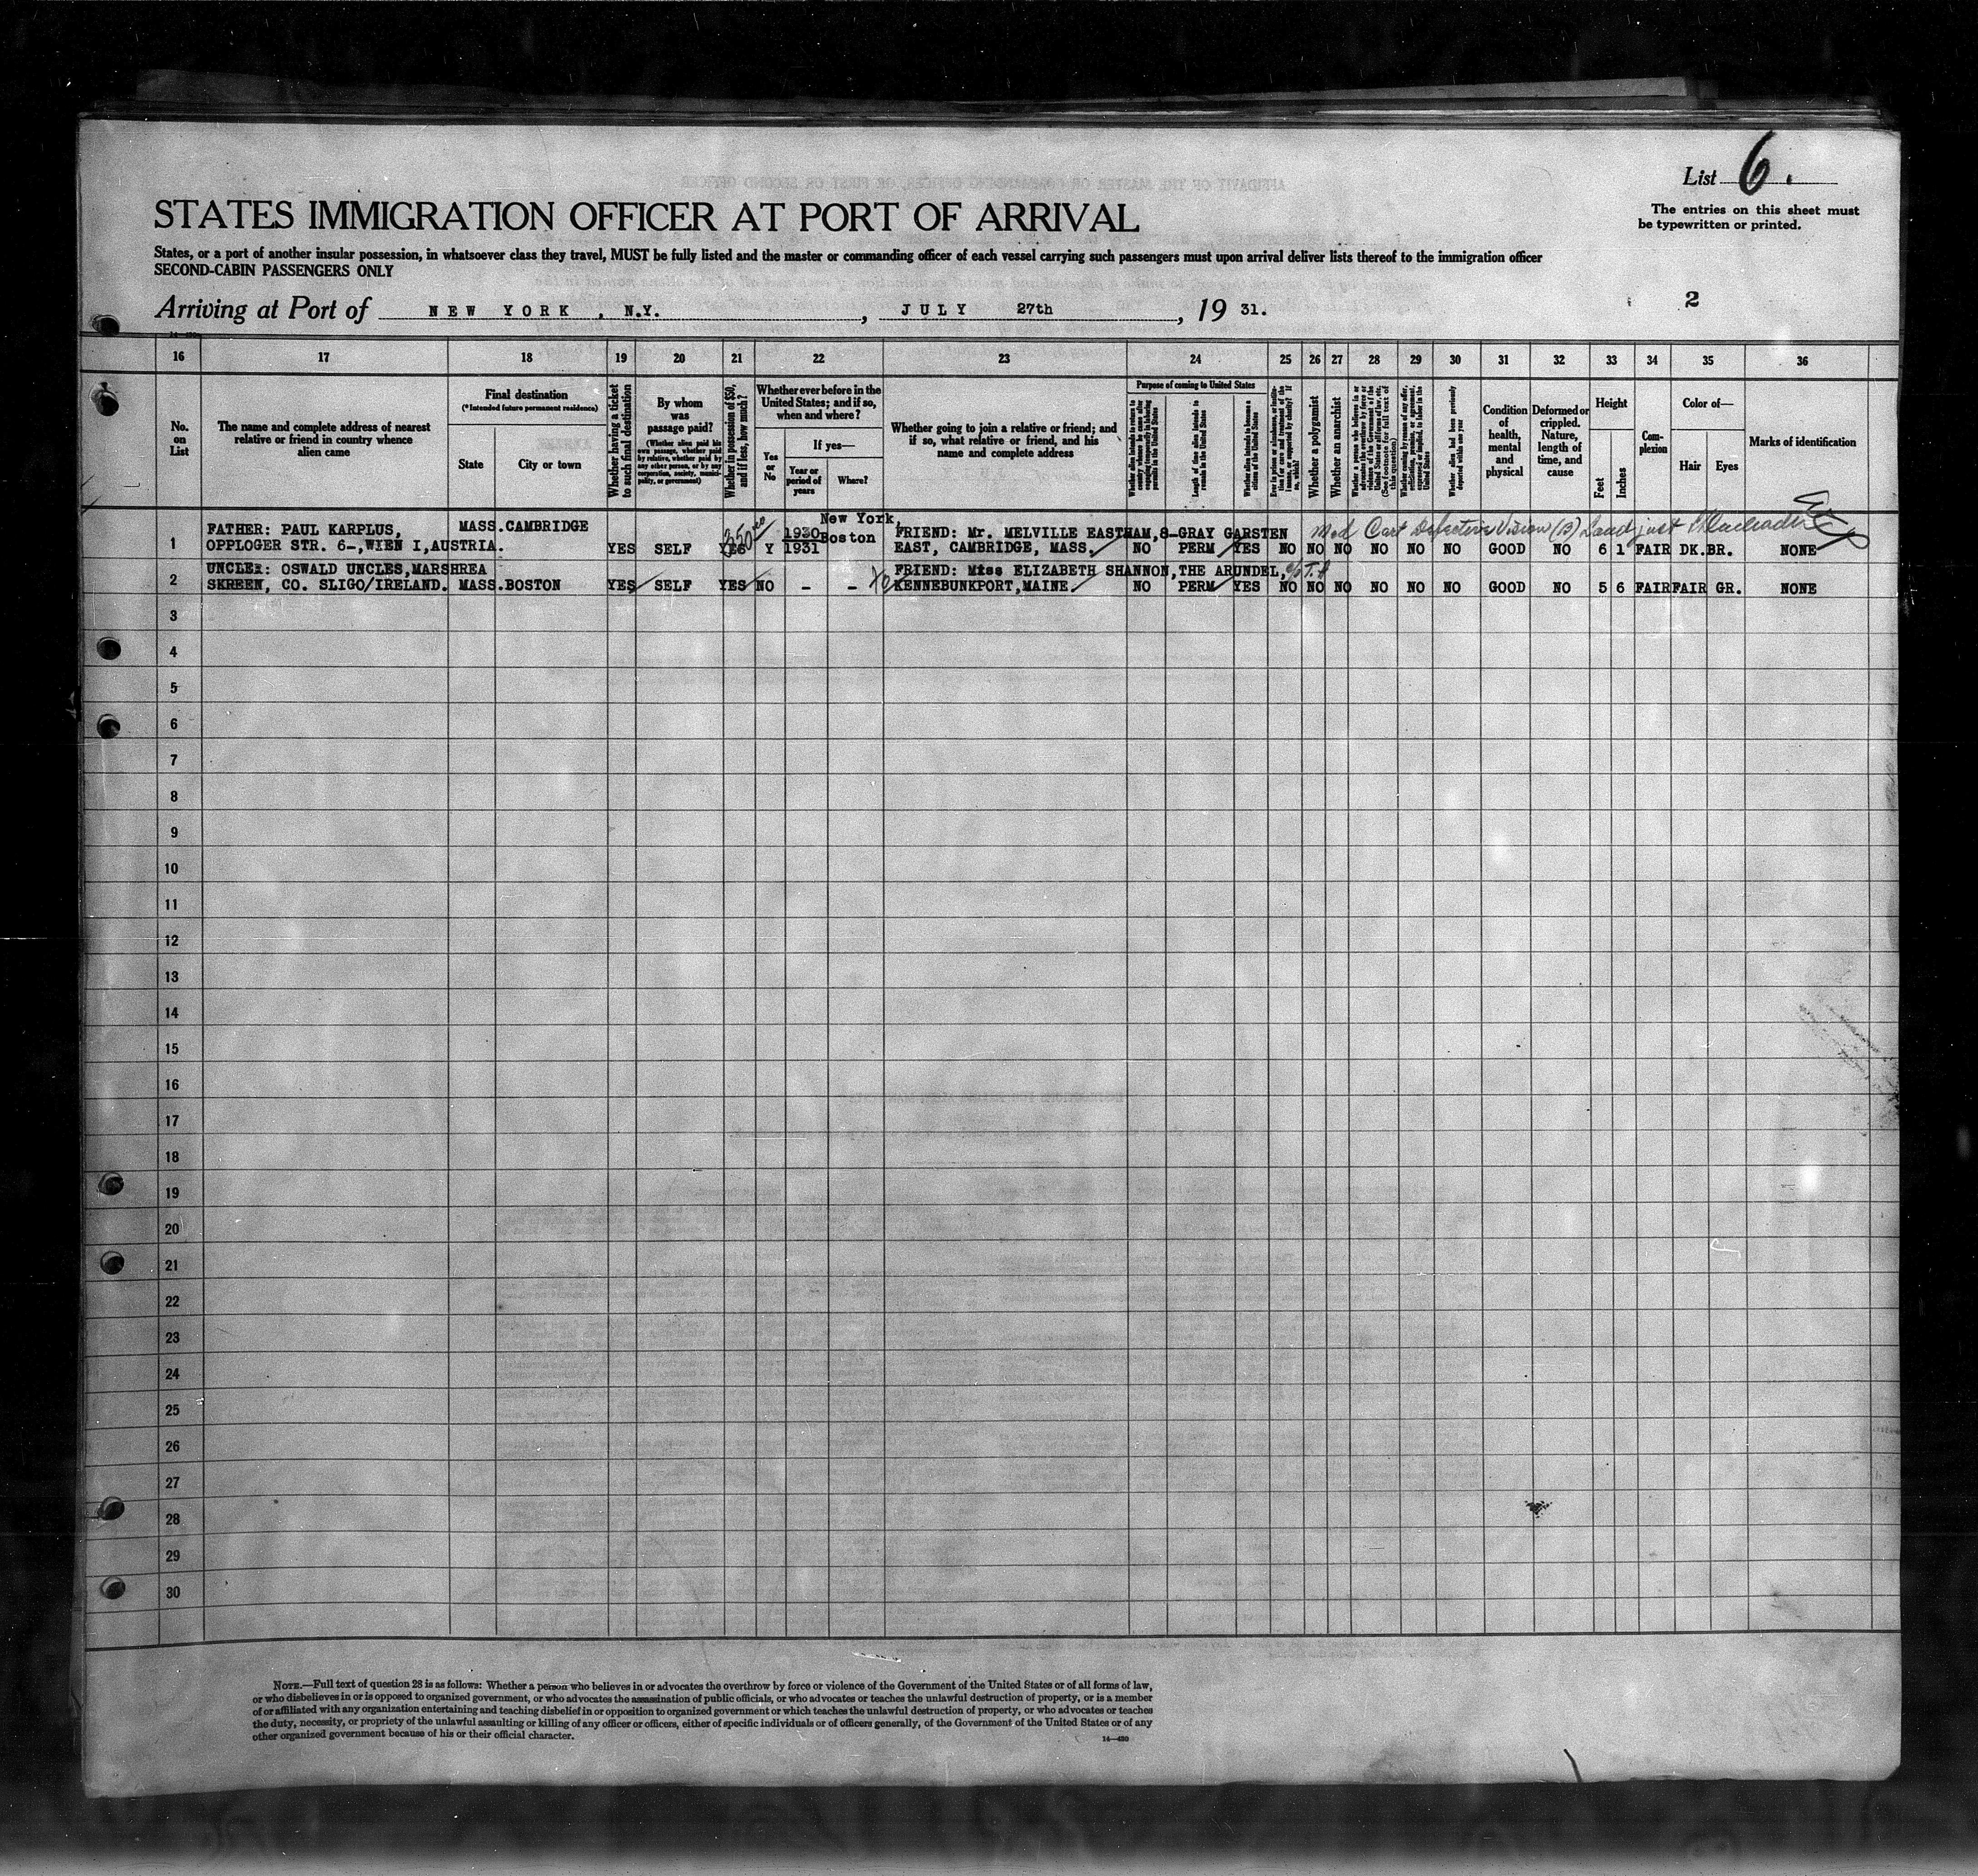 List 6.
The entries on this sheet must
be typewritten or printed.
STATES IMMIGRATION OFFICER AT PORT OF ARRIVAL
States, or a port of another insular possession, in whatsoever class they travel, MUST be fully listed and the master or commanding officer of each vessel carrying such passengers must upon arrival deliver lists thereof to the immigration officer
SECOND-CABIN PASSENGERS ONLY
Arriving at Port of NEW YORK, N.Y., JULY 27th, 19 31.
2
16 17 18 19 20 21 22 23 24 25 26 27 28 29 30 31 32 33 34 35 36
No. on List
The name and complete address of nearest relative or friend in country whence alien came
Final destination
(*Intended future permanent residence)
State
City or town
Whether having a ticket to such final destination
By whom was passage paid?
(Whether alien paid his own passage, whether paid by relative, whether paid by any other person, or by any corporation, society, municipality, or government)
Whether in possession of $50, and if less, how much?
Whether ever before in the United States; and if so, when and where?
Yes or No
If yes—
Year or period of years
Where?
Whether going to join a relative or friend; and if so, what relative or friend, and his name and complete address
Purpose of coming to United States
Whether alien intends to return to country whence he came after engaging temporarily in laboring pursuits in the United States
Length of time alien intends to remain in the United States
Whether alien intends to become a citizen of the United States
Ever in prison or almshouse, or institution for care and treatment of the insane, or supported by charity? If so, which?
Whether a polygamist
Whether an anarchist
Whether a person who believes in or advocates the overthrow by force or violence of the Government of the United States or all forms of law, etc. (See footnote for full text of this question)
Whether coming by reason of any offer, solicitation, promise, or agreement, expressed or implied, to labor in the United States
Whether alien had been previously deported within one year
Condition of health, mental and physical
Deformed or crippled. Nature, length of time, and cause
Height
Feet
Inches
Complexion
Color of—
Hair
Eyes
Marks of identification
New York,
1 FATHER: PAUL KARPLUS, MASS. CAMBRIDGE 350 1930 Boston FRIEND: Mr. MELVILLE EASTHAM, 8-GRAY GARSTEN Med Cert Defective Vision (B)
OPPLOGER STR. 6-, WIEN I, AUSTRIA. YES SELF YES Y 1931 EAST, CAMBRIDGE, MASS. NO PERM YES NO NO NO NO NO NO GOOD NO 6 1 FAIR DK. BR. NONE
2 UNCLE: OSWALD UNCLES, MARSHREA FRIEND: Miss ELIZABETH SHANNON, THE ARUNDEL,
SKREEN, CO. SLIGO/IRELAND. MASS. BOSTON YES SELF YES NO - - KENNEBUNKPORT, MAINE. NO PERM YES NO NO NO NO NO NO GOOD NO 5 6 FAIR FAIR GR. NONE
3
4
5
6
7
8
9
10
11
12
13
14
15
16
17
18
19
20
21
22
23
24
25
26
27
28
29
30
NOTE.—Full text of question 28 is as follows: Whether a person who believes in or advocates the overthrow by force or violence of the Government of the United States or of all forms of law,
or who disbelieves in or is opposed to organized government, or who advocates the assassination of public officials, or who advocates or teaches the unlawful destruction of property, or is a member
of or affiliated with any organization entertaining and teaching disbelief in or opposition to organized government or which teaches the unlawful destruction of property, or who advocates or teaches
the duty, necessity, or propriety of the unlawful assaulting or killing of any officer or officers, either of specific individuals or of officers generally, of the Government of the United States or of any
other organized government because of his or their official character.
14—430